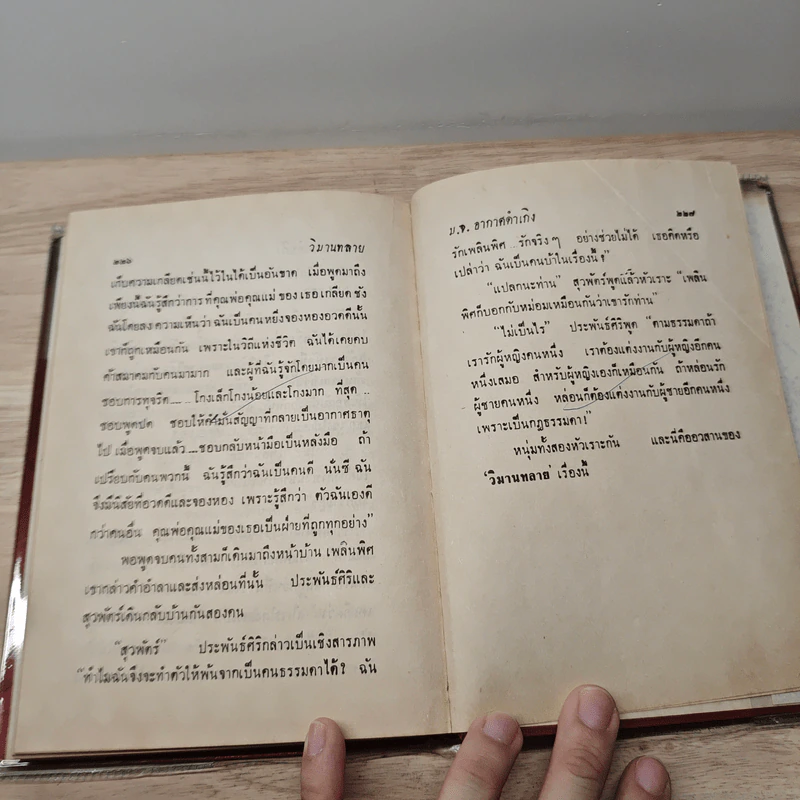 ๒๒๖
วิมานทลาย
เก็บความเกลียดเช่นนี้ไว้ในได้เป็นอันขาด เมื่อพูดมาถึง
เพียงนี้ฉันรู้สึกว่าการ ที่คุณพ่อคุณแม่ ของ เธอ เกลียด ชัง
ฉันโดยลง ความเห็นว่า ฉันเป็นคนหยิ่งจองหองอวดดีนั้น
เขาก็ถูกเหมือนกัน เพราะในวิถีแห่งชีวิต ฉันได้เคยคบ
ค้าสมาคมกับคนมามาก และผู้ที่ฉันรู้จักโดยมากเป็นคน
ชอบการทุจริต..... โกงเล็กโกงน้อยและโกงมาก ที่สุด ..
ชอบพูดปด ชอบให้คำมั่นสัญญาที่กลายเป็นอากาศธาตุ
ไป เมื่อพูดจบแล้ว .... ชอบกลับหน้ามือเป็นหลังมือ ถ้า
เปรียบกับคนพวกนี้ ฉันรู้สึกว่าฉันเป็นคนดี นั่นซี ฉัน
จึงมีนิสัยที่อวดดีและจองหอง เพราะรู้สึกว่า ตัวฉันเองดี
กว่าคนอื่น คุณพ่อคุณแม่ของเธอเป็นฝ่ายที่ถูกทุกอย่าง”
พอพูดจบคนทั้งสามก็เดินมาถึงหน้าบ้าน เพลินพิศ
เขากล่าวคำอำลาและส่งหล่อนที่นั้น ประพันธ์ศิริและ
สุวพัตร์เดินกลับบ้านกันสองคน
“สุวพัตร์” ประพันธ์ศิริกล่าวเป็นเชิงสารภาพ
“ทำไมฉันจึงจะทำตัวให้พ้นจากเป็นคนธรรมดาได้? ฉัน
ม.จ. อากาศดำเกิง
๒๒๗
รักเพลินพิศ ... รักจริง ๆ อย่างช่วยไม่ได้ เธอคิดหรือ
เปล่าว่า ฉันเป็นคนบ้าในเรื่องนี้?”
“แปลกนะท่าน” สุวพัตร์พูดแล้วหัวเราะ “เพลิน
พิศก็บอกกับหม่อมเหมือนกันว่าเขารักท่าน”
“ไม่เป็นไร” ประพันธ์ศิริพูด “ตามธรรมดาถ้า
เรารักผู้หญิงคนหนึ่ง เราต้องแต่งงานกับผู้หญิงอีกคน
หนึ่งเสมอ สำหรับผู้หญิงเองก็เหมือนกัน ถ้าหล่อนรัก
ผู้ชายคนหนึ่ง หล่อนก็ต้องแต่งงานกับผู้ชายอีกคนหนึ่ง
เพราะเป็นกฎธรรมดา!”
หนุ่มทั้งสองหัวเราะกัน และนี่คืออวสานของ
‘วิมานทลาย’ เรื่องนี้